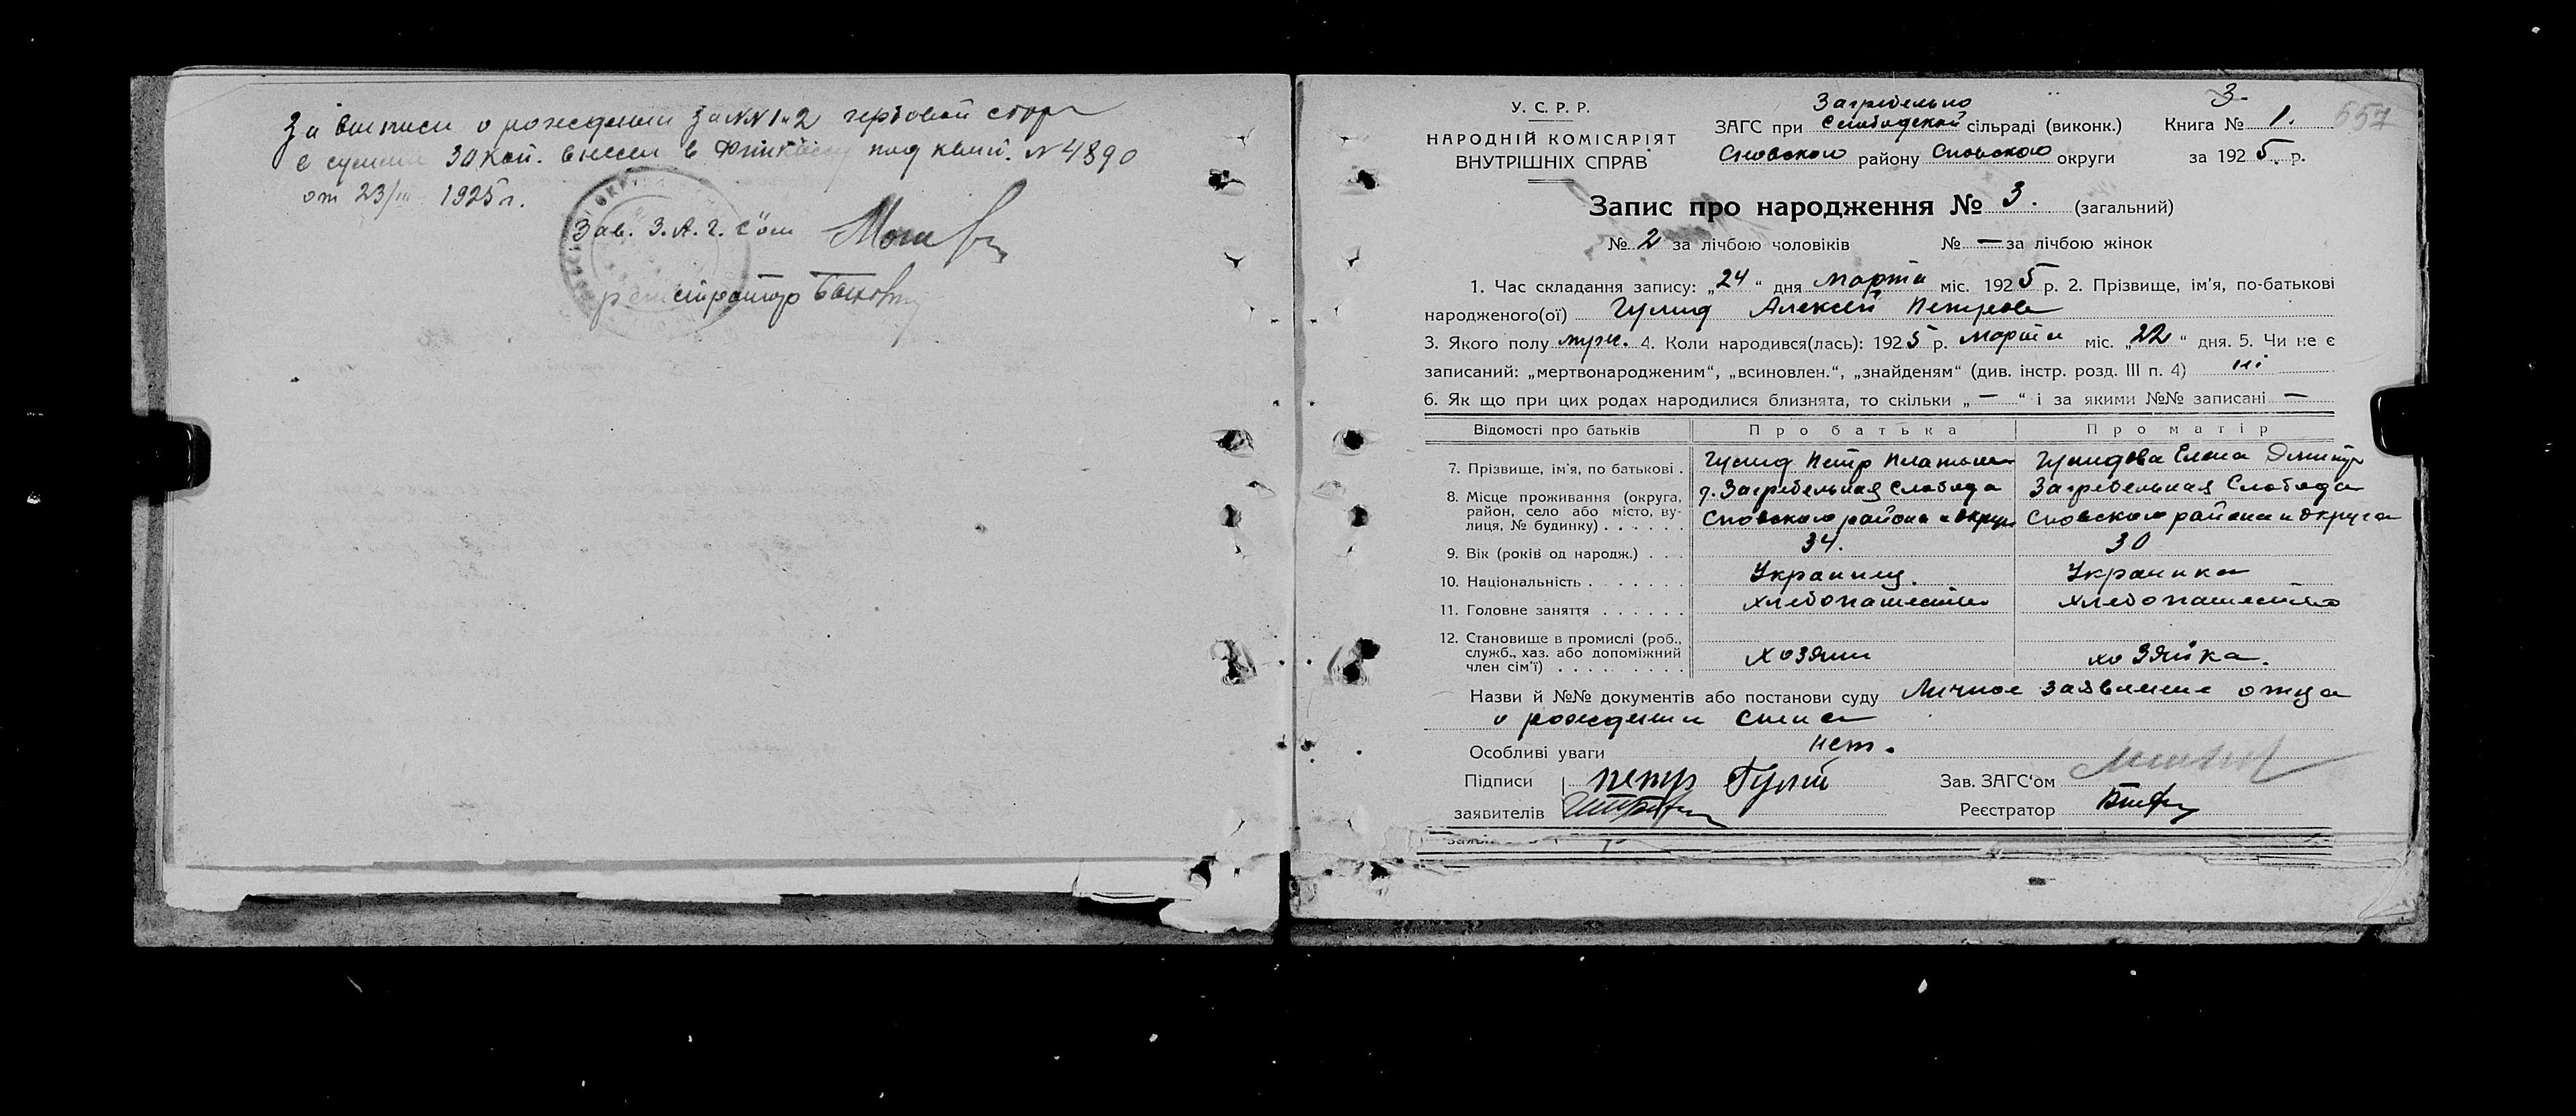 За выписи о рождении за №№ 1 и 2 гербовой сбор
в сумме 30 коп. внесен в под квит. № 4890
от 23/III 1925 г.
Зав. З.А.Г.С'ом
регистратор
3.
У. С. Р. Р.
НАРОДНІЙ КОМІСАРІЯТ
ВНУТРІШНІХ СПРАВ
Загребельно
ЗАГС при Слободской сільраді (виконк.) Книга № 1. 557
Сновского району Сновского округи за 1925 р.
Запис про народження № 3. (загальний)
№ 2 за лічбою чоловіків № — за лічбою жінок
1. Час складання запису: „24“ дня марта міс. 1925 р. 2. Прізвище, ім'я, по-батькові
народженого(ої) Гулид Алексей Петров
3. Якого полу муж. 4. Коли народився(лась): 1925 р. марта міс. „22“ дня. 5. Чи не є
записаний: „мертвонародженим“, „всиновлен.“, „знайденям“ (див. інстр. розд. III п. 4) ні
6. Як що при цих родах народилися близнята, то скільки „—“ і за якими №№ записані —
Відомості про батьків Про батька Про матір
7. Прізвище, ім'я, по батькові . Гулид Петр Гулидова Елена Дмитр
8. Місце проживання (округа, район, село або місто, вулиця, № будинку) . . . . . .
Загребельная Слобода
Сновского района и округи
Загребельная Слобода
Сновского района и округа
9. Вік (років од народж.) . . . 34. 30
10. Національність . . . . . . . Украинец. Украинка
11. Головне заняття . . . . . . хлебопашество хлебопашество
12. Становище в промислі (роб., служб., хаз. або допоміжний член сім'ї) . . . . . . . . . хозяин хозяйка.
Назви й №№ документів або постанови суду Личное заявление отца
о рождении сына
Особливі уваги нет.
Підписи петр Гулий Зав. ЗАГС'ом
заявителів Реєстратор